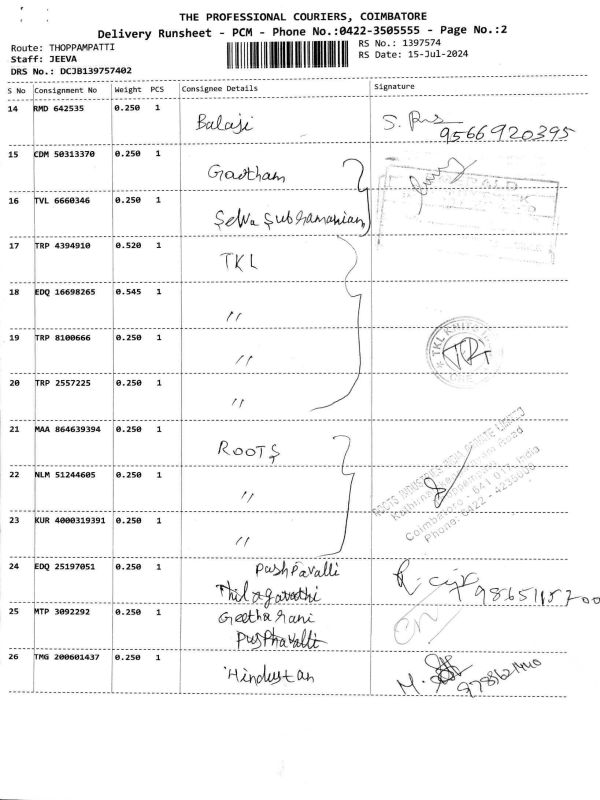 THE PROFESSIONAL COURIERS, COIMBATORE
Delivery Runsheet - PCM - Phone No.:0422-3505555 - Page No.:2
Route: THOPPAMPATTI
RS No.: 1397574
Staff: JEEVA
RS Date: 15-Jul-2024
DRS No.: DCJB139757402
S No Consignment No Weight PCS Consignee Details Signature
14 RMD 642535 0.250 1 Balaji S.
9566920395
15 CDM 50313370 0.250 1 Gowtham
16 TVL 6660346 0.250 1 Selva Subramanian
17 TRP 4394910 0.520 1 TKL
18 EDQ 16698265 0.545 1 "
19 TRP 8100666 0.250 1 "
TKL KNITS
20 TRP 2557225 0.250 1 "
21 MAA 864639394 0.250 1 ROOTS
ROOTS INDUSTRIES INDIA PRIVATE LIMITED
22 NLM 51244605 0.250 1 "
Coimbatore - 641 017, India
Phone: 0422 - 4236000
23 KUR 4000319391 0.250 1 "
24 EDQ 25197051 0.250 1 Pushpavalli
Thilagavathi
25 MTP 3092292 0.250 1 Geetha rani
Pushpavalli
26 TMG 200601437 0.250 1 Hindustan M.